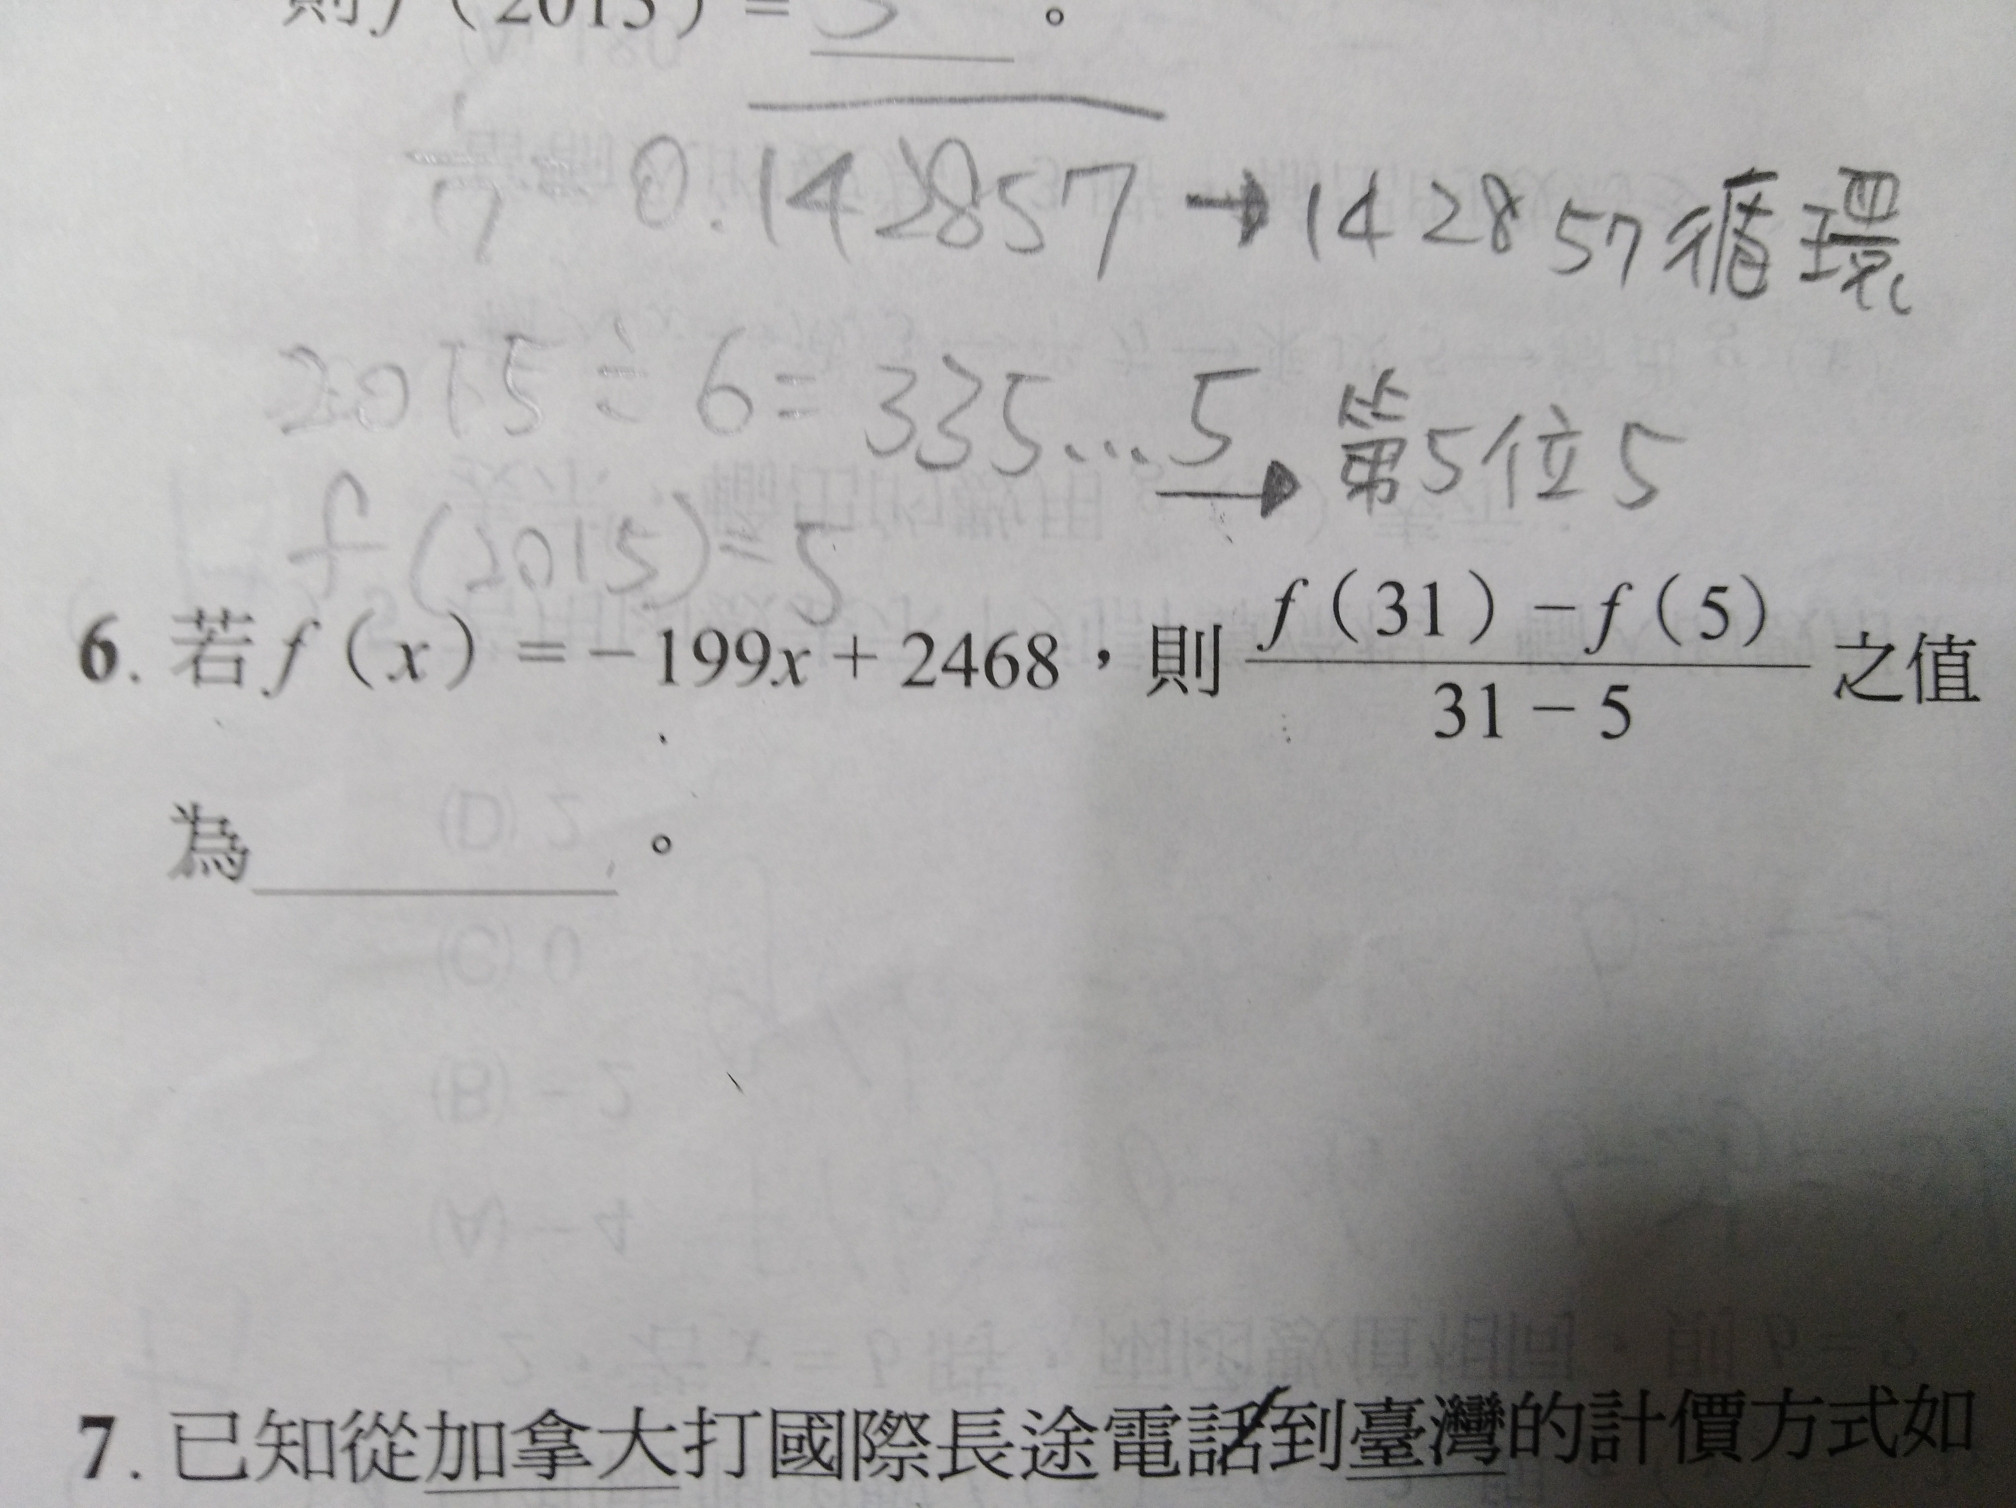 則f(2015)=5。
1/7=0.142857→142857循環
2015÷6=335…5→第5位5
f(2015)=5
6. 若f(x)=-199x+2468，則 \frac{f(31)-f(5)}{31-5} 之值
為______。
7. 已知從加拿大打國際長途電話到臺灣的計價方式如